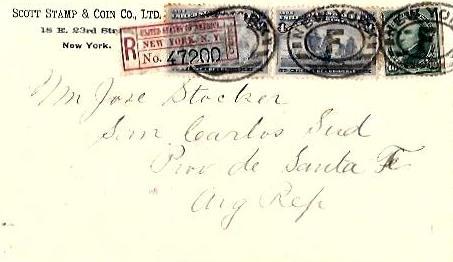 SCOTT STAMP & COIN CO., LTD.
18 E. 23rd Str
New York.
R
UNITED STATES OF AMERICA
NEW YORK, N. Y.
No. 47200
F
Jose Stocker
San Carlos Sud
Prov de Santa Fe
Arg Rep